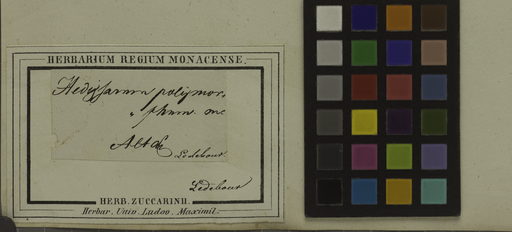 HERBARIUM REGIUM MONACENSE.
Hedysarum polymor-
phum. mc
Altai
Ledebour
Ledebour
HERB. ZUCCARINII.
Herbar. Univ. Ludov. Maximil.